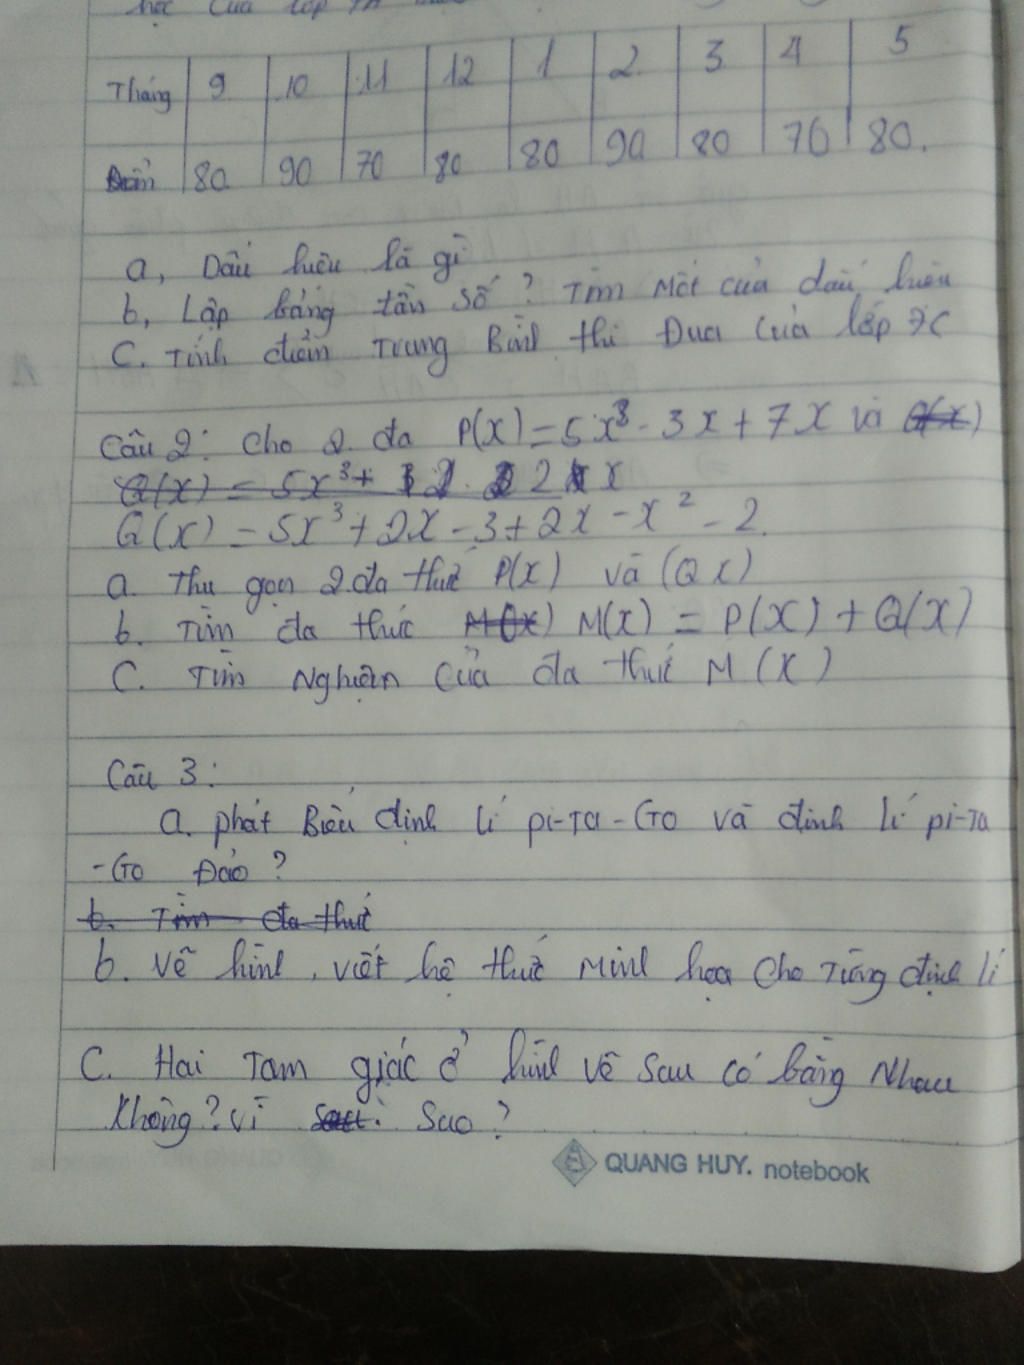 học của lớp
Tháng 9 10 11 12 1 2 3 4 5
Điểm 80 90 70 80 80 90 80 70 80.
a, Dấu hiệu là gì
b, Lập bảng tần số ? Tìm Mốt của dấu hiệu
C. Tính điểm Trung Bình thi Đua Của lớp 7C
Câu 2: Cho 2 đa P(x) = 5x³ - 3x + 7x và Q(x)
Q(x) = 5x³ +
Q(x) = 5x³ + 2x - 3 + 2x - x² - 2.
a. Thu gọn 2 đa thức P(x) và (Qx)
b. Tìm đa thức M(x) M(x) = P(x) + Q(x)
C. Tìm Nghiệm Của đa thức M(x)
Câu 3:
a. phát Biểu định lí pi-Ta-Go và định lí pi-Ta
-Go Đảo ?
b. Tìm đa thức
b. Vẽ hình, viết hệ thức Minh họa Cho Từng định lí
C. Hai Tam giác ở hình vẽ Sau Có bằng Nhau
Không? Vì Sao ?
QUANG HUY. notebook